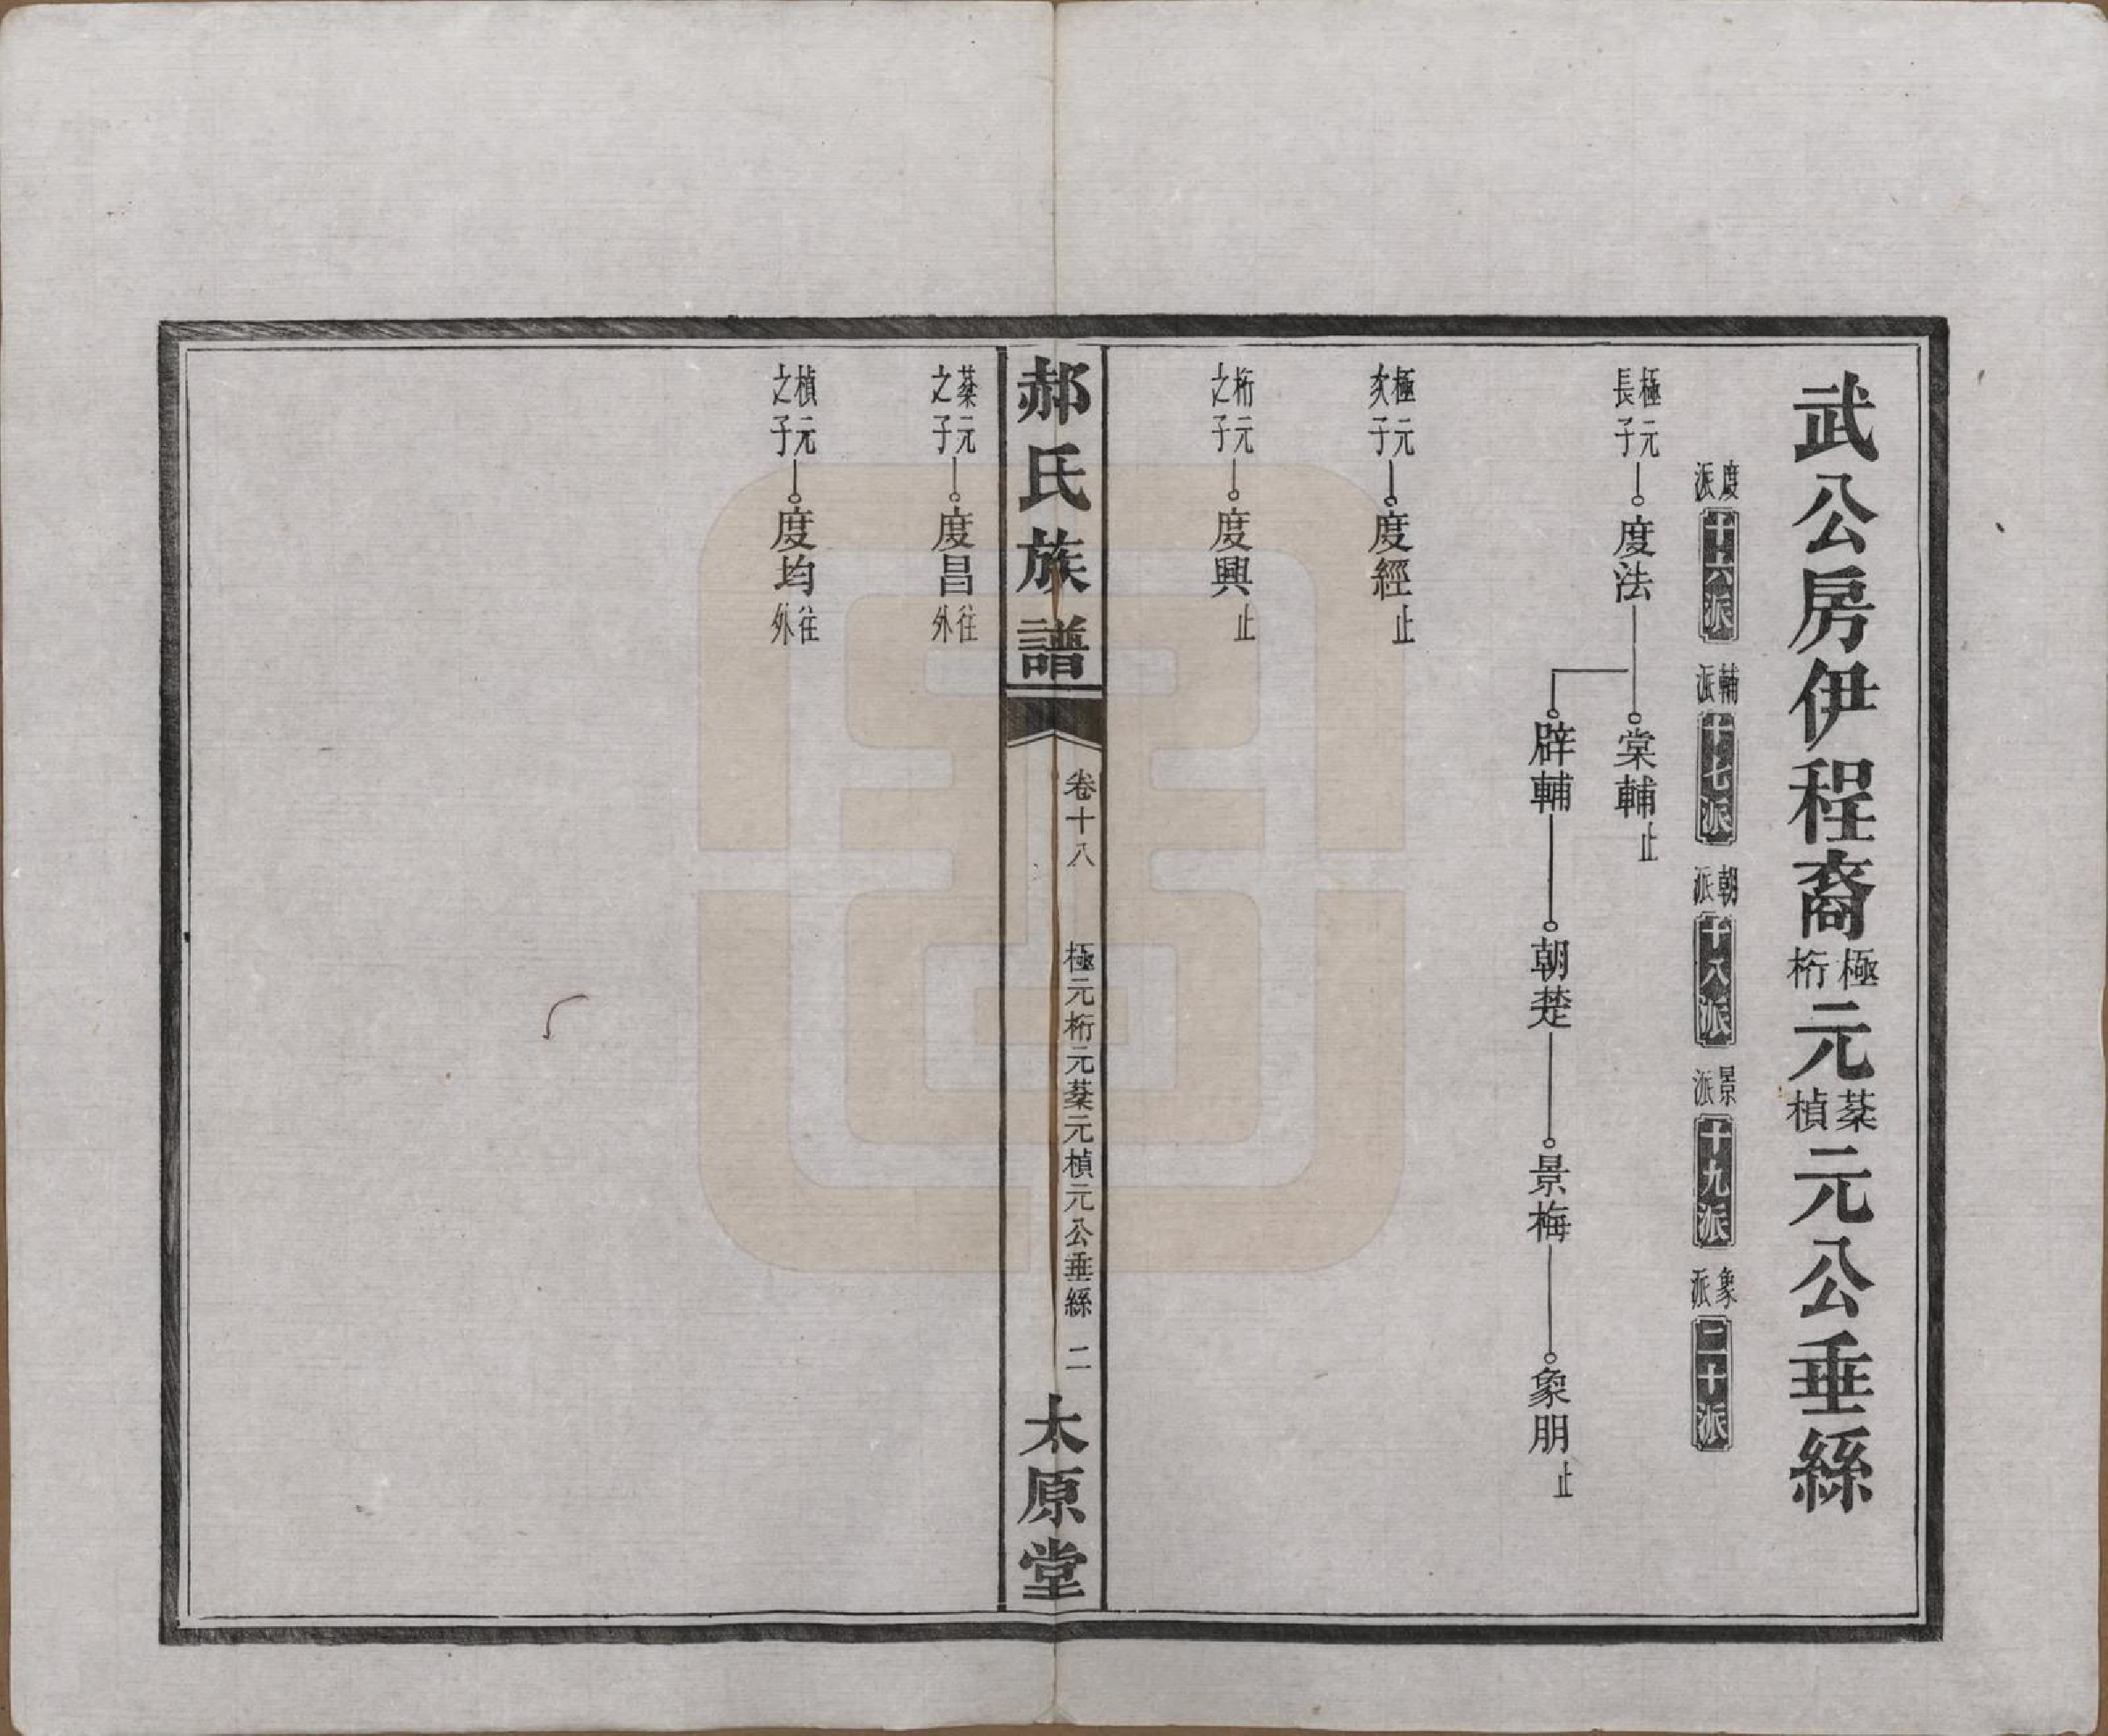 武公房伊程裔極桁元棻楨元公垂絲
度派十六派 輔派十七派 朝派十八派 景派十九派 象派二十派
極元長子 度法 棠輔止
辟輔 朝楚 景梅 象朋止
極元次子 度經止
桁元之子 度興止
郝氏族譜 卷十八 極元桁元棻元楨元公垂絲 二 太原堂
棻元之子 度昌往外
楨元之子 度均往外